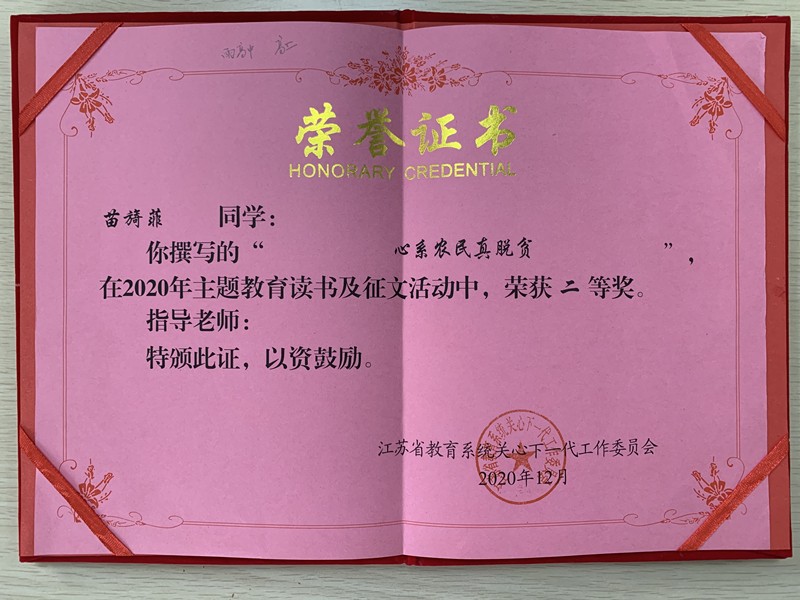 荣誉证书
HONORARY CREDENTIAL
苗旖菲 同学：
你撰写的“ 心系农民真脱贫 ”，
在2020年主题教育读书及征文活动中，荣获 二 等奖。
指导老师：
特颁此证，以资鼓励。
江苏省教育系统关心下一代工作委员会
2020年12月